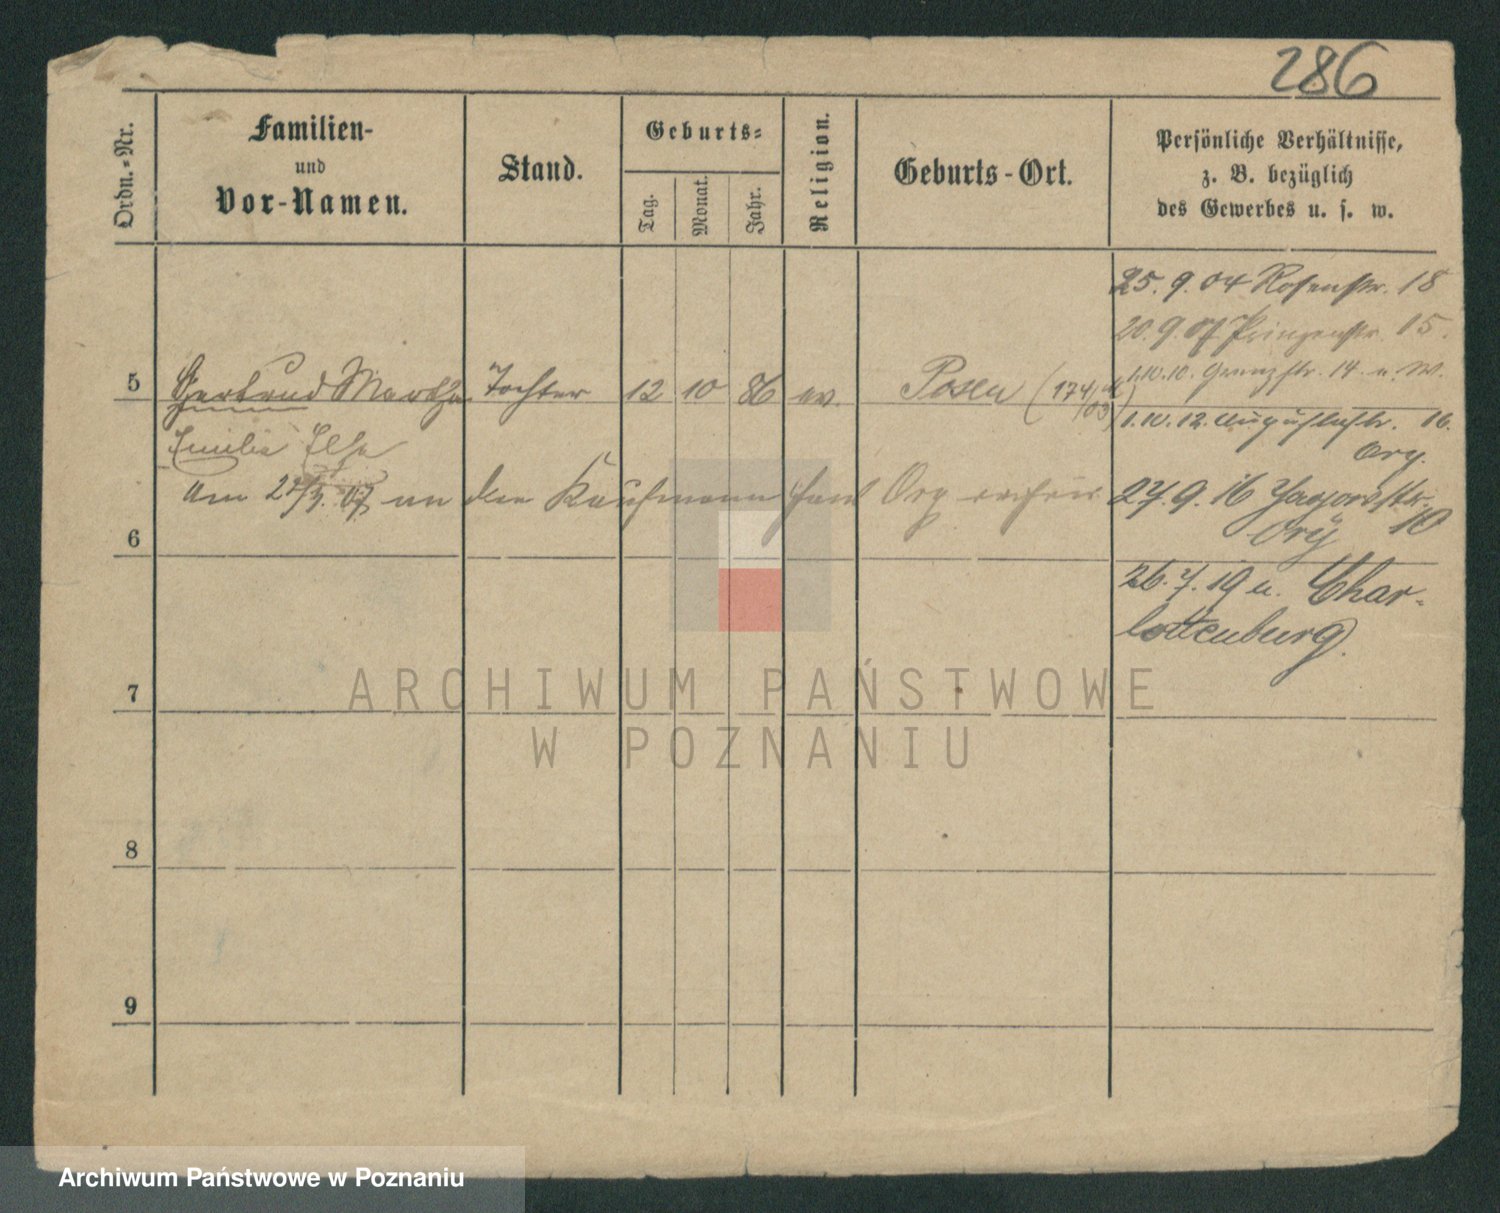 286
Ordn.-Nr.
Familien-
und
Vor-Namen.
Stand.
Geburts-
Tag.
Monat.
Jahr.
Religion.
Geburts-Ort.
Persönliche Verhältnisse,
z. B. bezüglich
des Gewerbes u. s. w.
25. 9. 04 Rosenstr. 18
20. 9. 07 Prinzenstr. 15.
1.10.10. Grenzstr. 14. u. W.
5 Gertrud Martha Tochter 12 10 86 ev. Posen (174/03)
1.10.12. Augustastr. 16.
Org.
Emilie Else
am 27/3. 07 an den Kaufmann Org
27. 9. 16 10
6
26. 7. 19 n. Char-
lottenburg.
7
8
9
ARCHIWUM PAŃSTWOWE
W POZNANIU
Archiwum Państwowe w Poznaniu